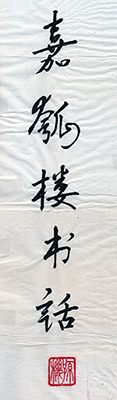 嘉瓠楼书話